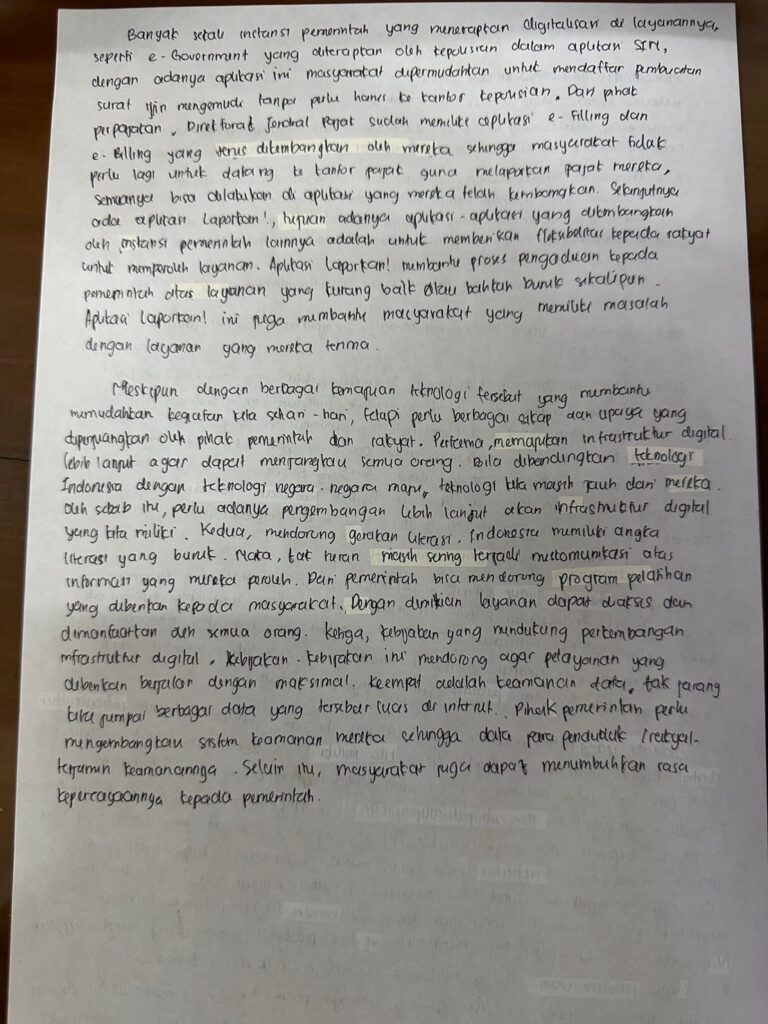 Banyak sekali instansi pemerintah yang menerapkan digitalisasi di layanannya,
seperti e-Government yang diterapkan oleh kepolisian dalam aplikasi SIM,
dengan adanya aplikasi ini masyarakat dipermudahkan untuk mendaftar pembuatan
surat ijin mengemudi tanpa perlu harus ke kantor kepolisian. Dari pihak
perpajakan, Direktorat Jendral Pajak sudah memiliki aplikasi e-Filling dan
e-Billing yang terus dikembangkan oleh mereka sehingga masyarakat tidak
perlu lagi untuk datang ke kantor pajak guna melaporkan pajak mereka,
semuanya bisa dilakukan di aplikasi yang mereka telah kembangkan. Selanjutnya
ada aplikasi Laporkan!, tujuan adanya aplikasi-aplikasi yang dikembangkan
oleh instansi pemerintah lainnya adalah untuk memberikan fleksibelitas kepada rakyat
untuk memperoleh layanan. Aplikasi Laporkan! membantu proses pengaduan kepada
pemerintah atas layanan yang kurang baik atau bahkan buruk sekalipun.
Aplikasi Laporkan! ini juga membantu masyarakat yang memiliki masalah
dengan layanan yang mereka terima.
Meskipun dengan berbagai kemajuan teknologi tersebut yang membantu
memudahkan kegiatan kita sehari-hari, tetapi perlu berbagai sikap dan upaya yang
diperjuangkan oleh pihak pemerintah dan rakyat. Pertama, memajukan infrastruktur digital
lebih lanjut agar dapat menjangkau semua orang. Bila dibandingkan teknologi
Indonesia dengan teknologi negara-negara maju, teknologi kita masih jauh dari mereka.
Oleh sebab itu, perlu adanya pengembangan lebih lanjut akan infrastruktur digital
yang kita miliki. Kedua, mendorong gerakan literasi. Indonesia memiliki angka
literasi yang buruk. Maka, tak heran masih sering terjadi miskomunikasi atas
informasi yang mereka peroleh. Dari pemerintah bisa mendorong program pelatihan
yang diberikan kepada masyarakat. Dengan demikian layanan dapat diakses dan
dimanfaatkan oleh semua orang. Ketiga, kebijakan yang mendukung perkembangan
infrastruktur digital. Kebijakan-kebijakan ini mendorong agar pelayanan yang
diberikan berjalan dengan maksimal. Keempat adalah keamanan data, tak jarang
kita jumpai berbagai data yang tersebar luas di internet. Pihak pemerintah perlu
mengembangkan sistem keamanan mereka sehingga data para penduduk / rakyat
terjamin keamanannya. Selain itu, masyarakat juga dapat menumbuhkan rasa
kepercayaannya kepada pemerintah.